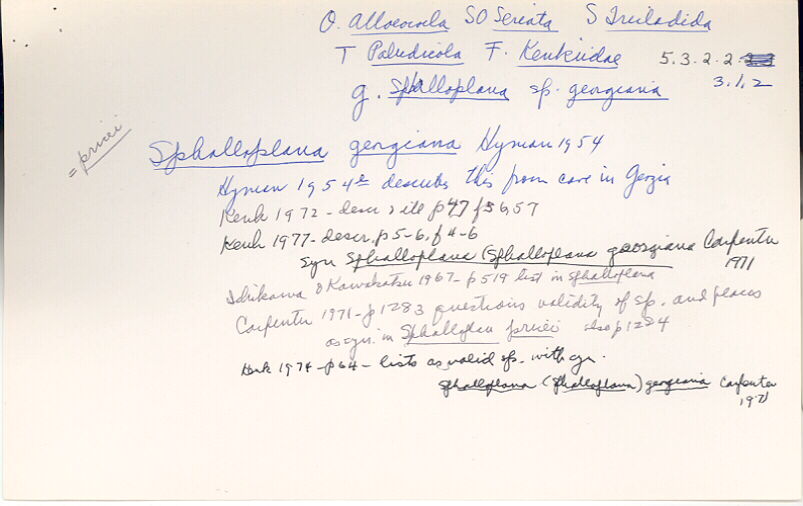 O. Alloeocoela SO Seriata S Tricladida
T Paludicola F. Kenkiidae 5.3.2.2.
3.1.2
g. Sphalloplana sp. georgiana
= pricei
Sphalloplana georgiana Hyman 1954
Hyman 1954 describes this from cave in Georgia
Kenk 1972 - descr & ill p47 f56,57
Kenk 1977 - descr. p5-6, f4-6
syn Sphalloplana (Sphalloplana georgiana Carpenter
1971
Ichikawa & Kawakatsu 1967 - p519 list in Sphalloplana
Carpenter 1971 - p1283 questions validity of sp. and places
as syn. in Sphalloplana pricei also p1284
Kenk 1974 - p64 - lists as valid sp. with syn.
Sphalloplana (Sphalloplana) georgiana Carpenter
1971